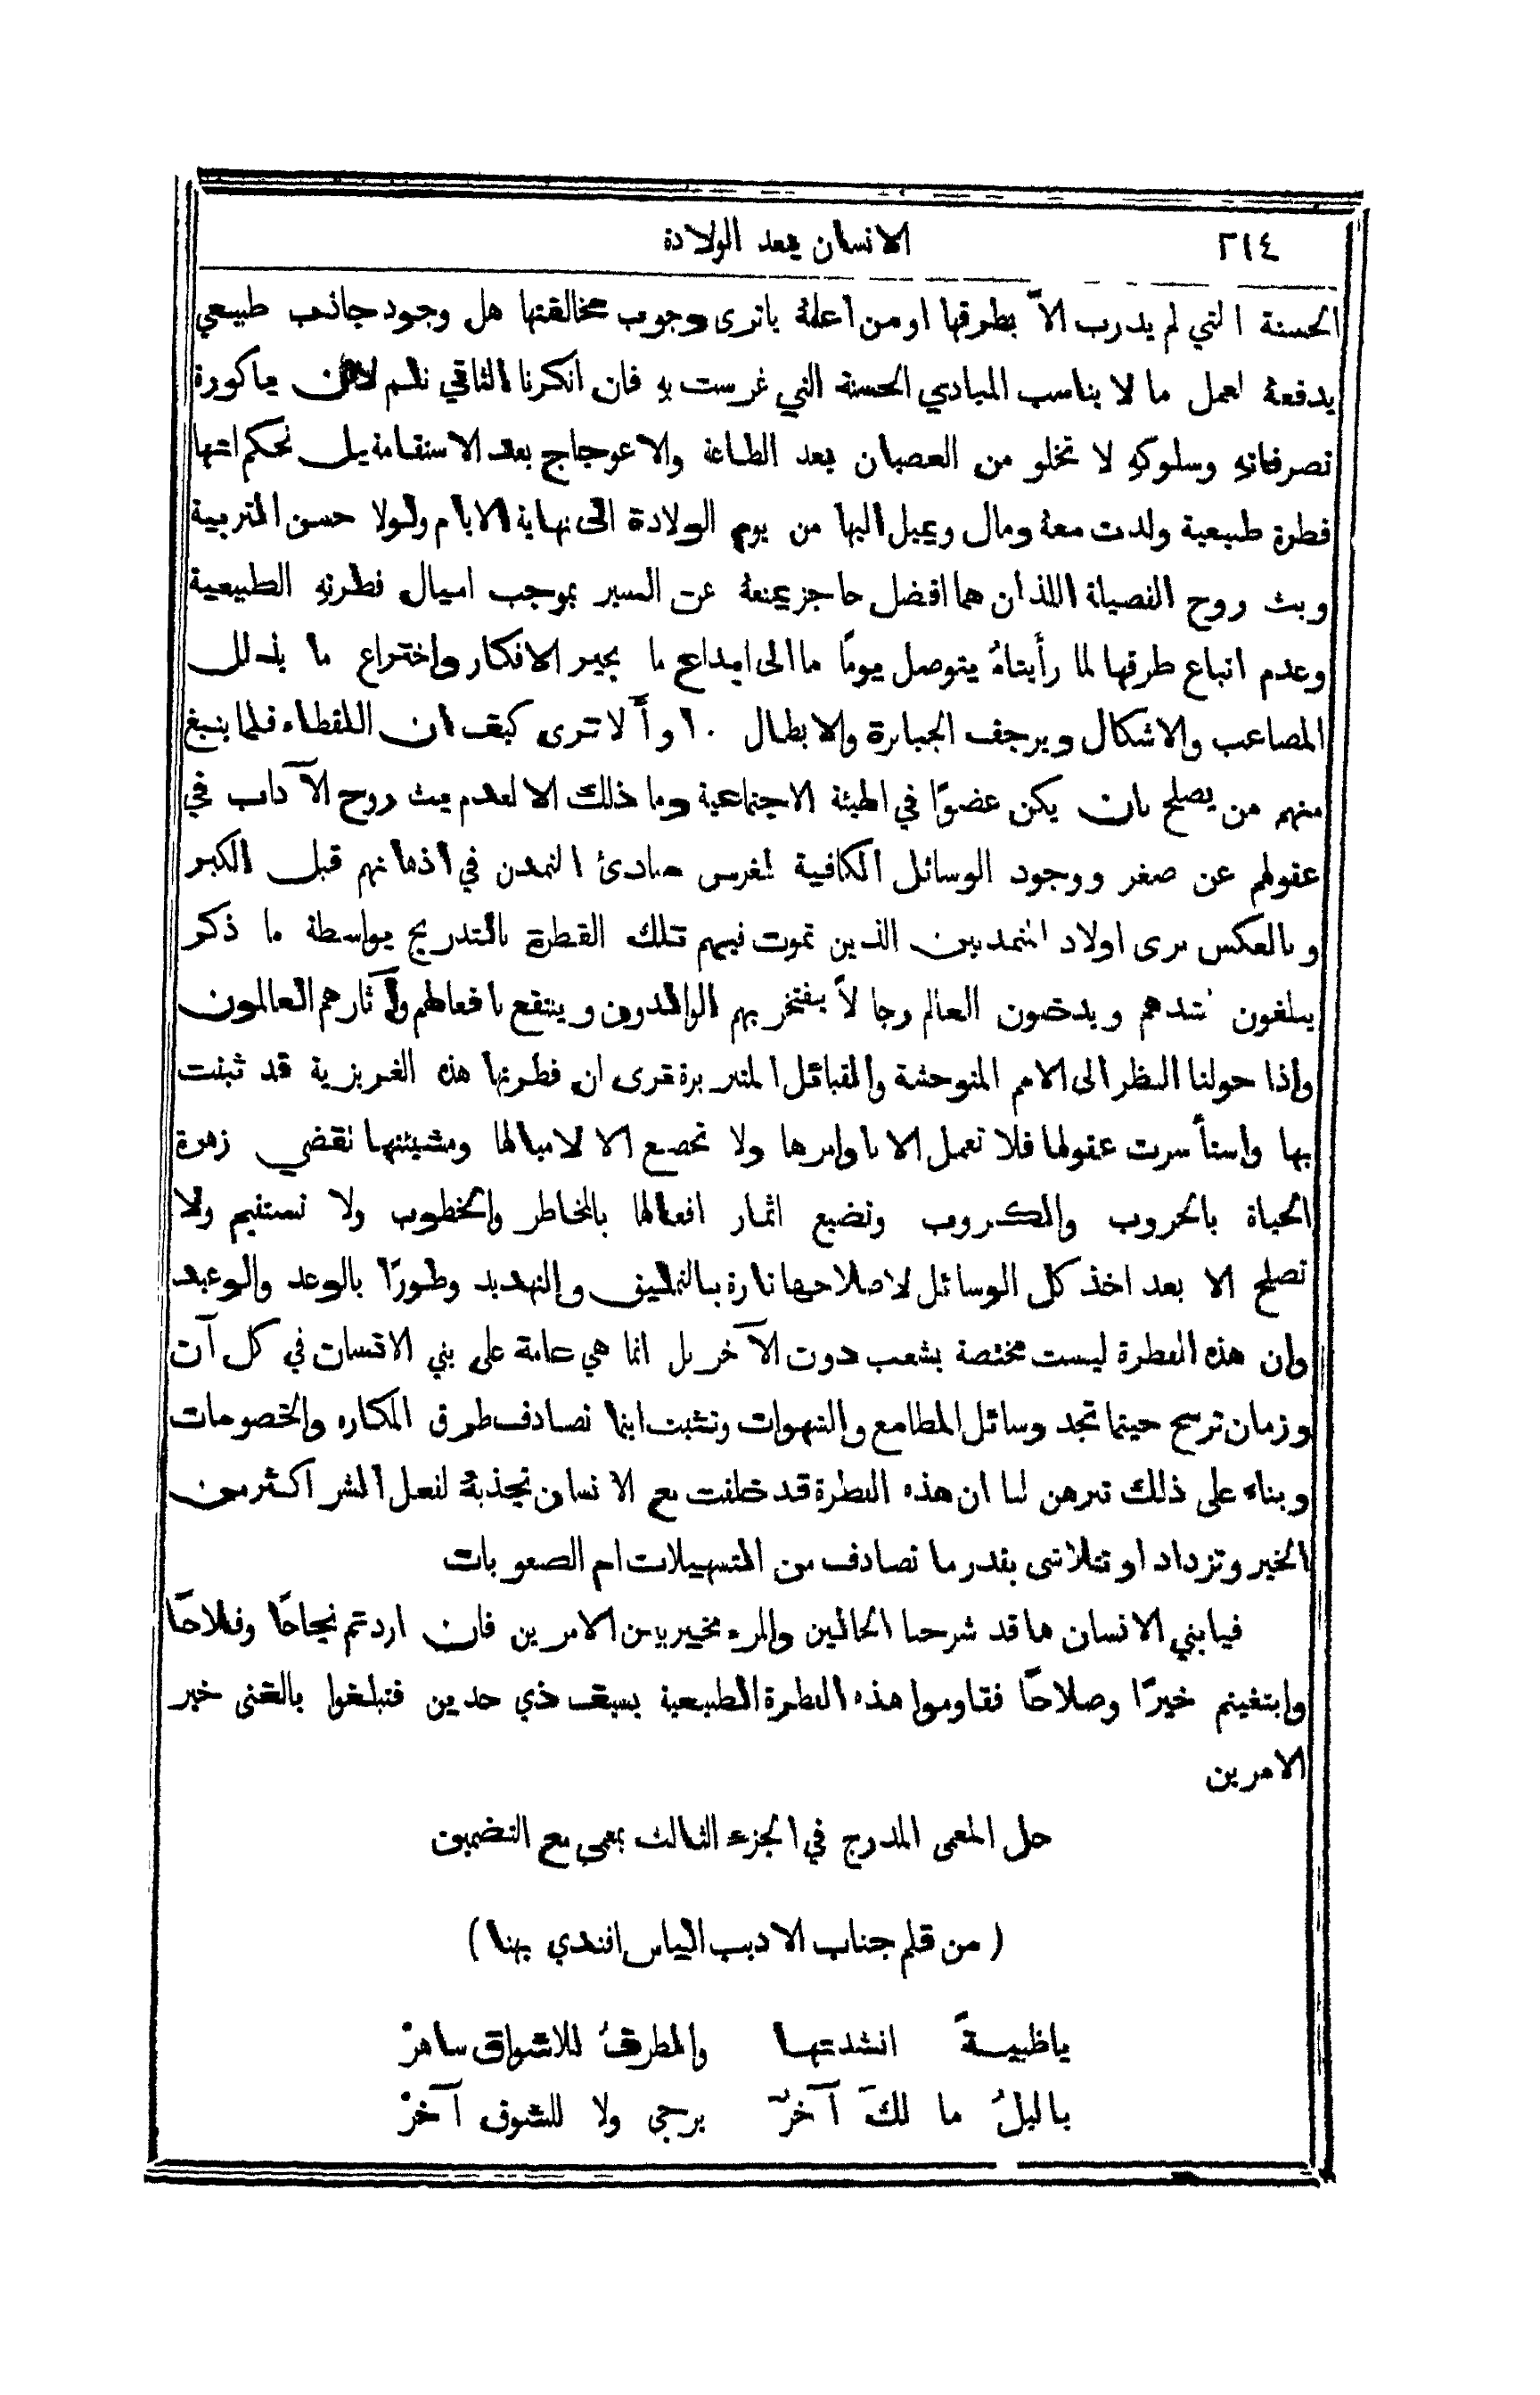 ٢١٤ الانسان بعد الولادة
الحسنة التي لم يدرب الاَّ بطرقها او من اعلمهُ ياترى وجوب مخالفتها هل وجود جاذب طبيعي
يدفعهُ لعمل ما لا يناسب المبادي الحسنة التي غرست بهِ فان انكرنا الثاني نلم لان باكورة
تصرفاتهِ وسلوكهِ لا تخلو من العصيان بعد الطاعة والاعوجاج بعد الاستقامة بل نحكم انها
فطرة طبيعية ولدت معهُ ومال ويميل اليها من يوم الولادة الى نهاية الايام ولولا حسن التربية
وبث روح الفضيلة اللذان هما افضل حاجز يمنعهُ عن السير بموجب اميال فطرتهِ الطبيعية
وعدم اتباع طرقها لما رأيناهُ يتوصل يومًا ما الى ابداع ما يحير الافكار واختراع ما يذلل
المصاعب والاشكال ويرجف الجبابرة والابطال ٠ اوَ أَلا ترى كيف ان اللقطاء فلما ينبغ
منهم من يصلح بان يكن عضوًا في الهيئة الاجتماعية وما ذلك الا لعدم بث روح الآداب في
عقولهم عن صغر ووجود الوسائل الكافية لغرس مبادئ التمدن في اذهانهم قبل الكبر
وبالعكس نرى اولاد المتمدنين الذين تموت فيهم تلك الفطرة بالتدريج بواسطة ما ذكر
يبلغون اشدهم ويدخلون العالم رجالاً يفتخر بهم الوالدون وينتفع بافعالهم وآثارهم العالمون
واذا حولنا النظر الى الامم المتوحشة والقبائل المتبربرة نرى ان فطرتها هذه الغريزية قد ثبتت
بها واستأسرت عقولها فلا تعمل الا باوامرها ولا تخضع الا لاميالها ومشيئتها نقضي زهرة
الحياة بالحروب والكروب وتضيع اثمار افعالها بالمخاطر والخطوب ولا تستقيم ولا
تصلح الا بعد اخذ كل الوسائل لاصلاحها تارة بالتمليق والتهديد وطورًا بالوعد والوعيد
وان هذه الفطرة ليست مختصة بشعب دون الآخر بل انما هي عامة على بني الانسان في كل آن
وزمان ترسخ حيثما تجد وسائل المطامع والشهوات وتثبت اينما تصادف طرق المكاره والخصومات
وبناء على ذلك تبرهن لنا ان هذه الفطرة قد خلقت مع الانسان تجذبهُ لفعل الشر اكثر من
الخير وتزداد او تتلاشى بقدر ما تصادف من التسهيلات ام الصعوبات
فيا بني الانسان ها قد شرحنا الحالين والمرء مخير بين الامرين فان اردتم نجاحًا وفلاحًا
وابتغيتم خيرًا وصلاحًا فقاوموا هذه الفطرة الطبيعية بسيف ذي حدين فتبلغوا بالتمني خير
الامرين
حل المعمى المدرج في الجزء الثالث بمعمى مع التضمين
(من قلم جناب الاديب الياس افندي بهنا)
ياظبيـةً انشدتهـا والطرفُ للاشواق ساهرْ
ياليلُ ما لكَ آخرٌ يرجى ولا للشوق آخرْ